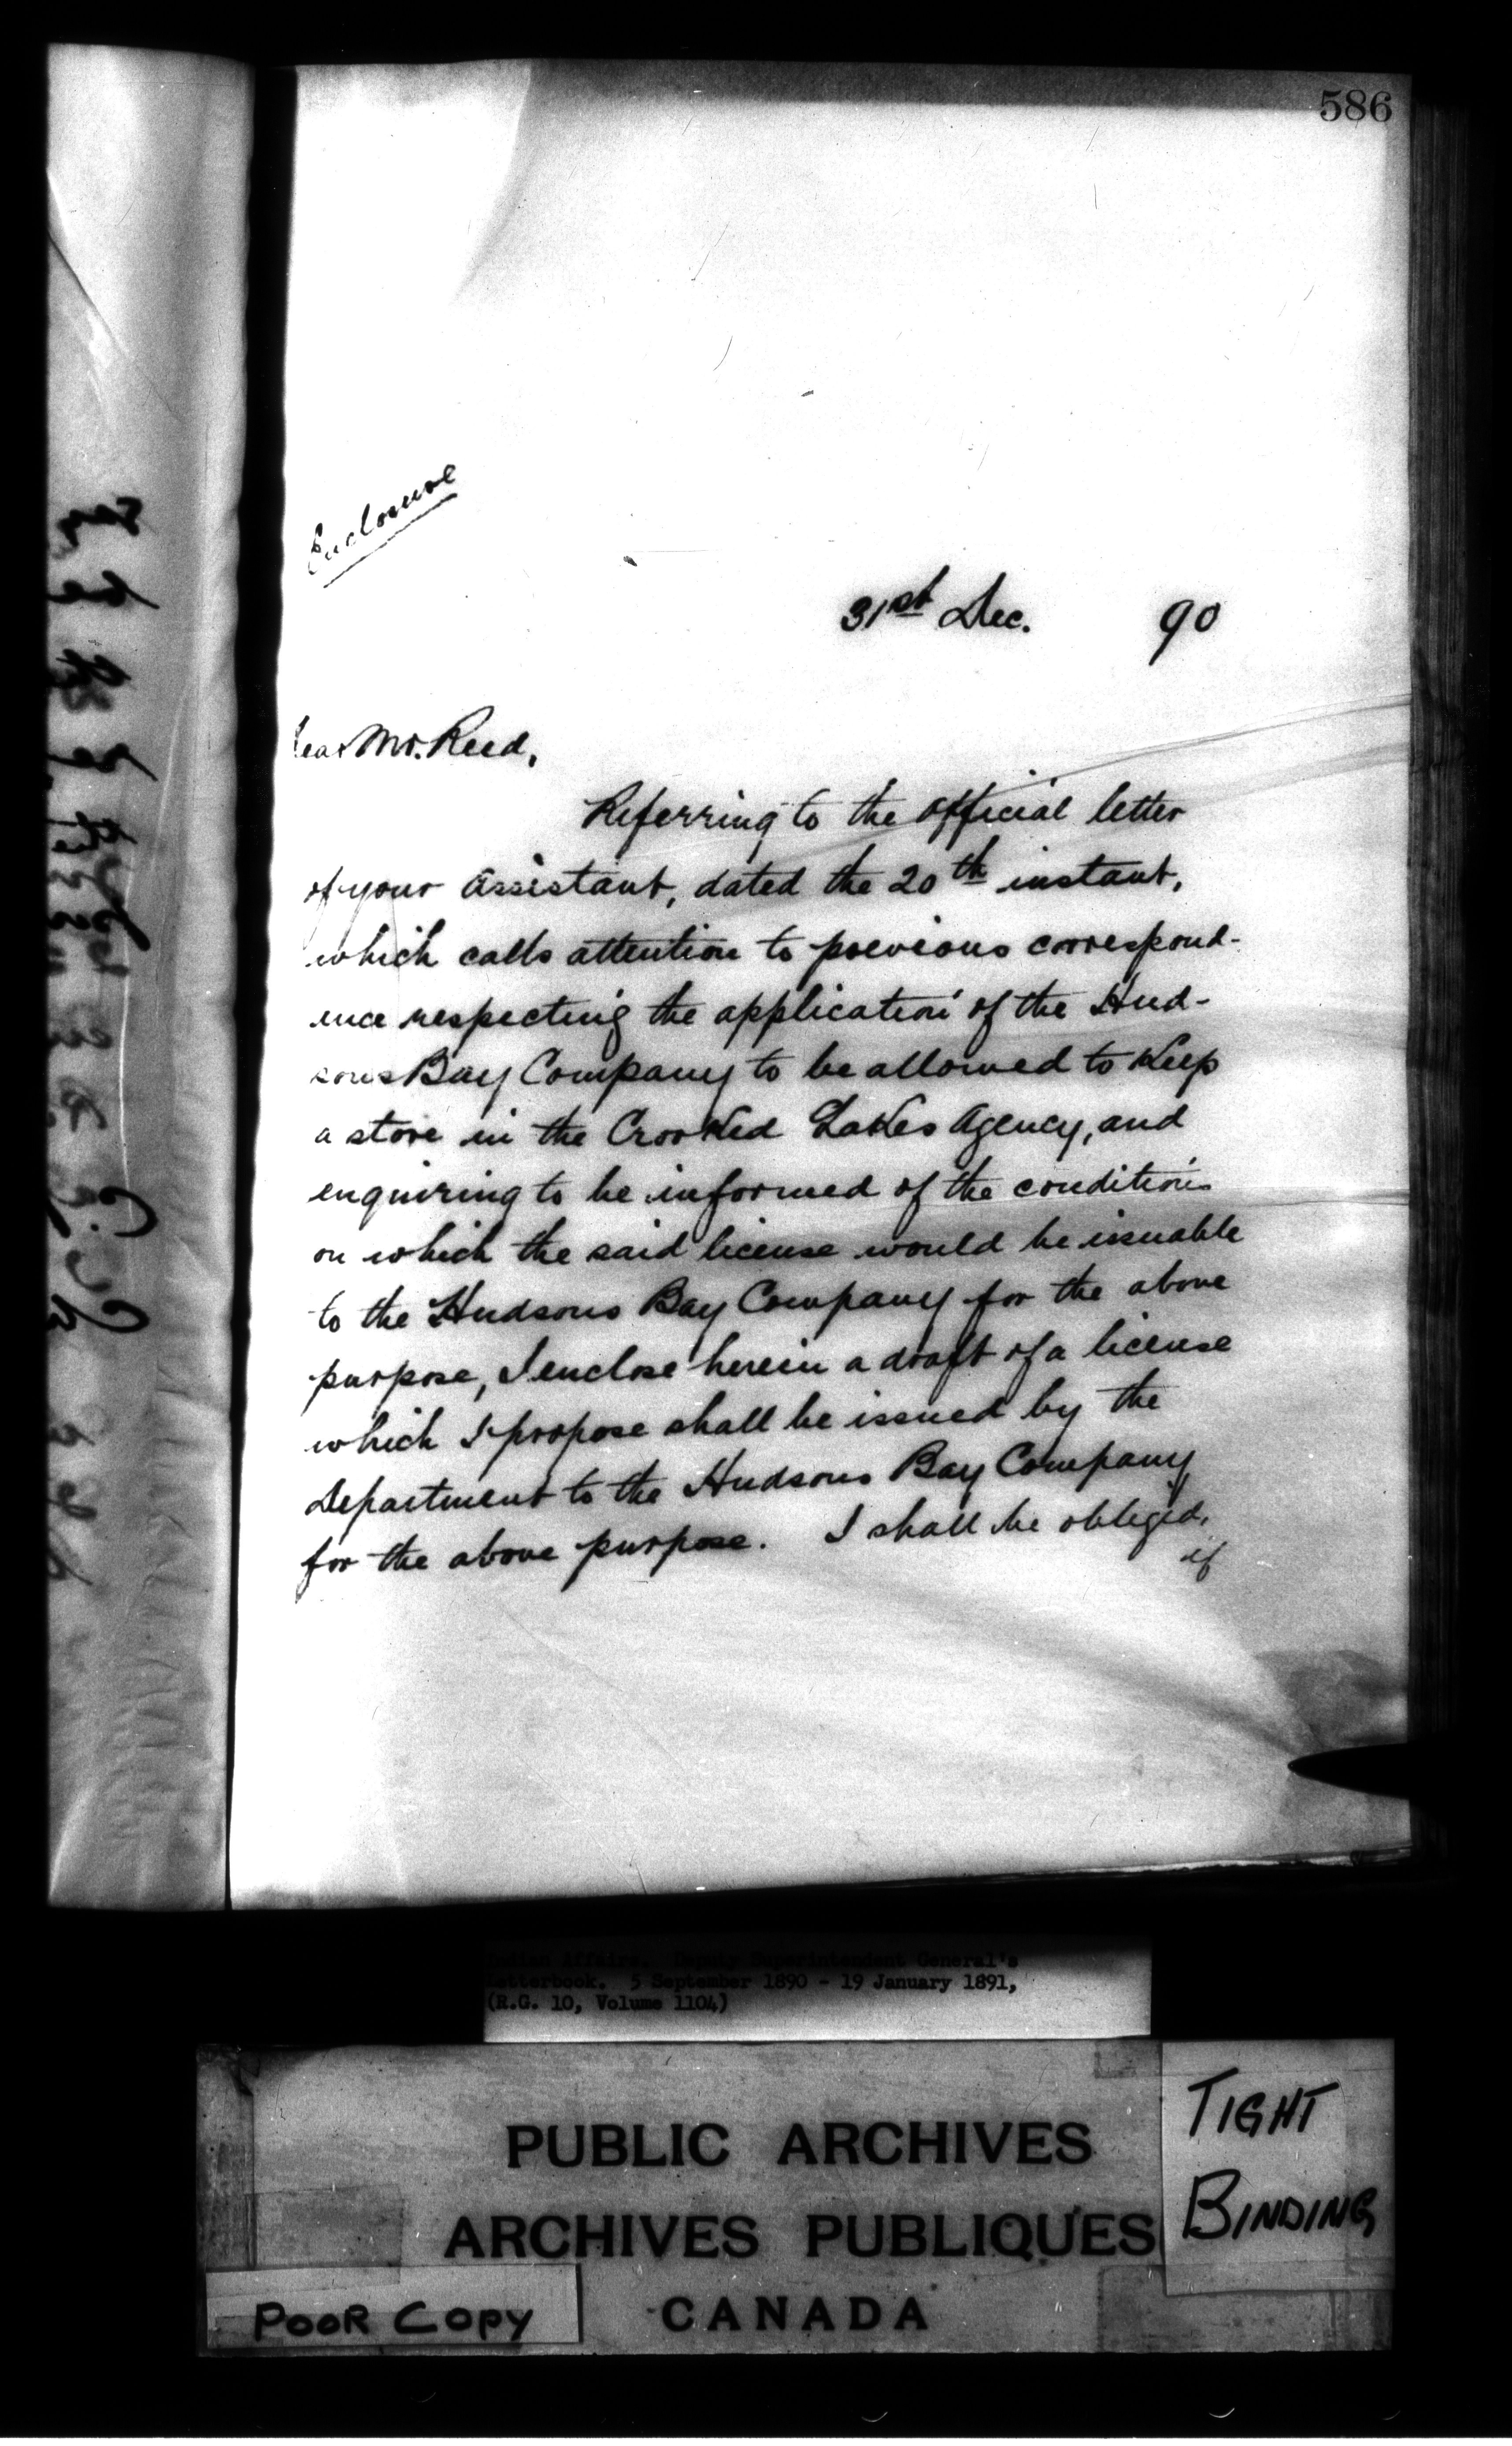 586
Enclosure
31st Dec. 90
Dear Mr. Reed,
Referring to the official letter
of your Assistant, dated the 20th instant,
which calls attention to previous correspond-
ence respecting the application of the Hud-
sons Bay Company to be allowed to Keep
a store in the Crooked Lakes Agency, and
enquiring to be informed of the conditions
on which the said license would be issuable
to the Hudsons Bay Company for the above
purpose, I enclose herein a draft of a license
which I propose shall be issued by the
Department to the Hudsons Bay Company
for the above purpose. I shall be obliged,
if
Indian Affairs. Deputy Superintendent General's
Letterbook. 5 September 1890 - 19 January 1891,
(R.G. 10, Volume 1104)
PUBLIC ARCHIVES
ARCHIVES PUBLIQUES
CANADA
TIGHT
BINDING
POOR COPY